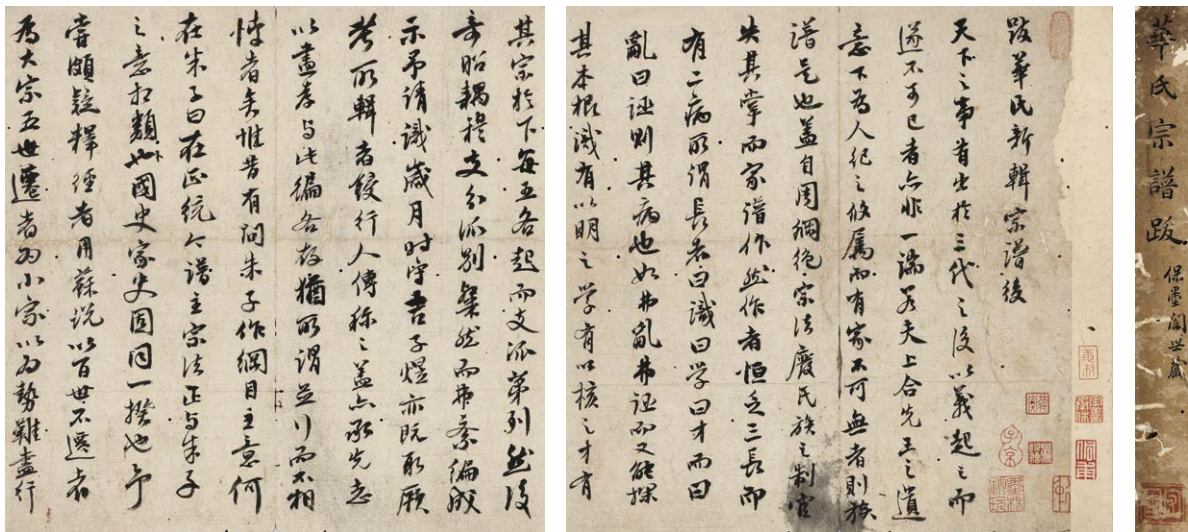 華氏宗譜跋
保墨閣世藏
跋華氏新輯宗譜後
天下之事有出於三代之後以義起之而
遂不可已者亦非一端若夫上合先王之遺
意下為人紀之攸屬而有家不可無者則族
譜是也蓋自周綱絶宗法廢氏族之制官
失其掌而家譜作然作者恒乏三長而
有二病所謂長者曰識曰学曰才而曰
亂曰誣則其病也如弗亂弗誣而又能探
其本根識有以明之学有以核之才有
其宗於下每五各起而支派第列然後
奇昭耦穆支分派別粲然而弗紊編成
示予請識歲月時守吾子煜亦既取厥
考所輯者鋟行人傳稱之蓋亦承先志
以盡孝与此編各存猶所謂並行而不相
悖者矣惟昔有問朱子作綱目主意何
在朱子曰在正統今譜主宗法正与朱子
之意相類也國史家史固同一揆也予
嘗頗疑釋經者用蘇説以百世不遷者
為大宗五世遷者为小家以为勢難盡行